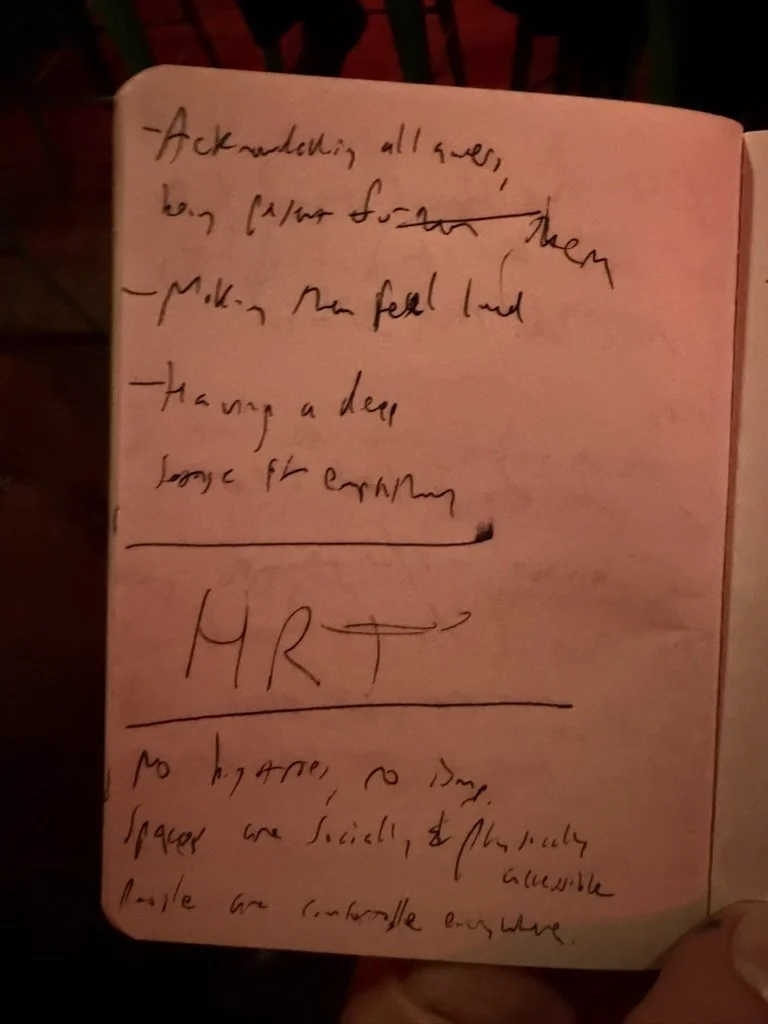 - Acknowledging all guests,
being present for them
- Making them feel loved
- Having a deep
sense for empathy
HRT
No bigotries, no isms.
Spaces are socially & physically
accessible
People are comfortable everywhere.